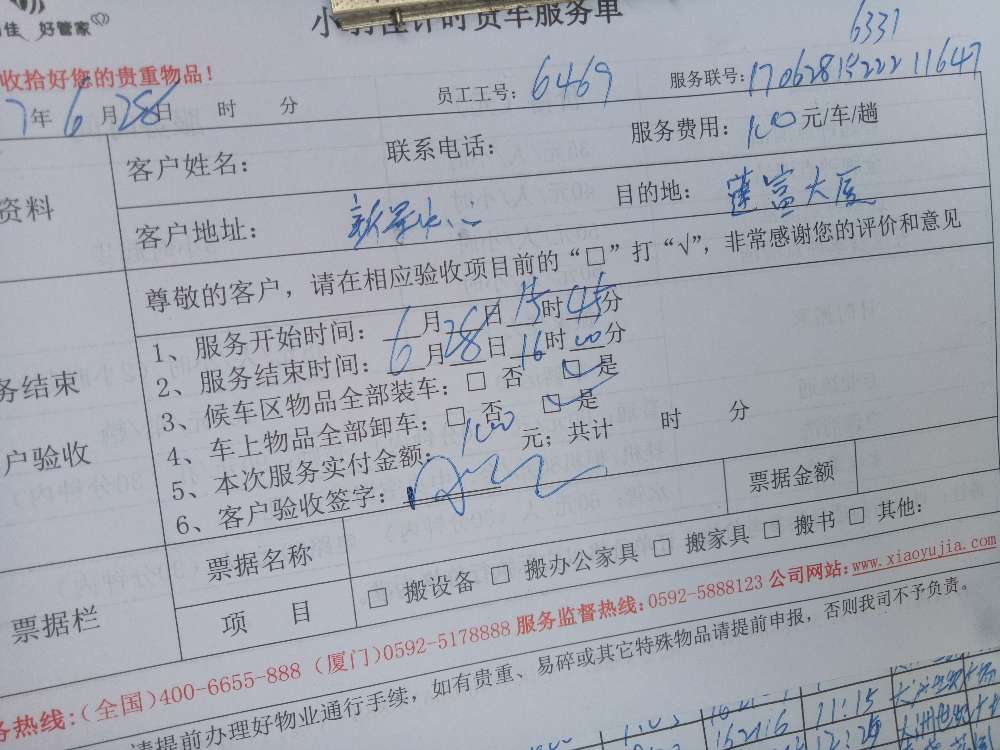 佳 好管家
计时货车服务单
收拾好您的贵重物品!
6331
7年6月28日 时 分 员工工号: 6469 服务联号: 17062815222211647
资料
客户姓名: 联系电话: 服务费用: 100元/车/趟
客户地址: 目的地: 莲富大厦
尊敬的客户,请在相应验收项目前的“□”打“√”,非常感谢您的评价和意见
务结束
户验收
1、服务开始时间: 6月28日15时45分
2、服务结束时间: 6月28日16时00分
3、候车区物品全部装车: □ 否 □ 是
4、车上物品全部卸车: □ 否 □ 是
5、本次服务实付金额: 100元; 共计 时 分
6、客户验收签字:
票据栏
票据名称 票据金额
项 目 □ 搬设备 □ 搬办公家具 □ 搬家具 □ 搬书 □ 其他:
务热线:(全国)400-6655-888 (厦门)0592-5178888 服务监督热线:0592-5888123 公司网站:www.xiaoyujia.com
请提前办理好物业通行手续,如有贵重、易碎或其它特殊物品请提前申报,否则我司不予负责。
11:15